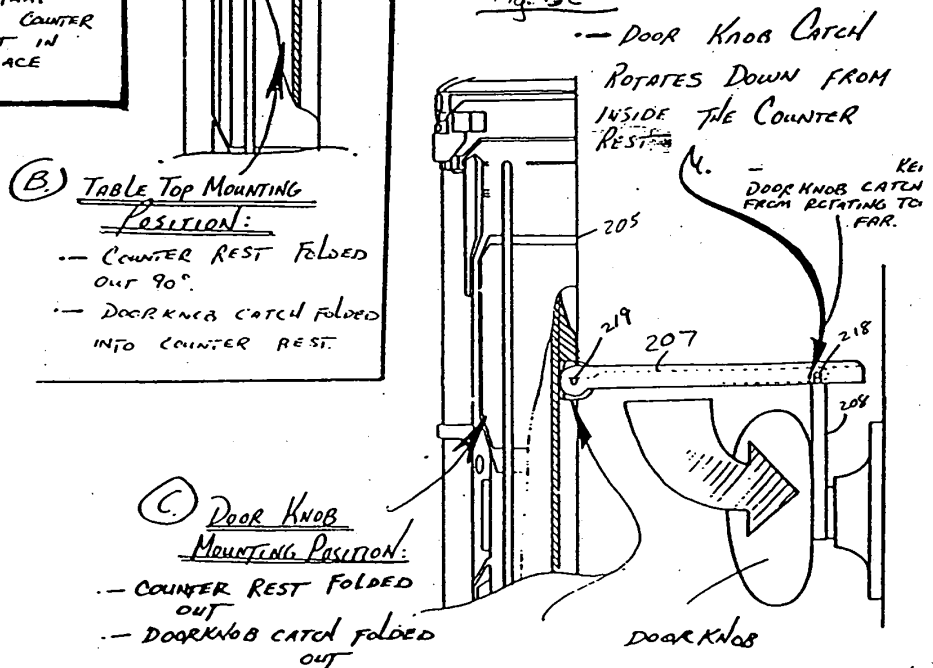 COUNTER
IN
ACE
Fig. 5C
·— DOOR KNOB CATCH
ROTATES DOWN FROM
INSIDE THE COUNTER
REST
M. –
DOOR KNOB CATCH
FROM ROTATING TO
FAR.
B. TABLE TOP MOUNTING
POSITION:
·— COUNTER REST FOLDED
OUT 90°.
·— DOORKNOB CATCH FOLDED
INTO COUNTER REST.
205
219
207
218
208
C. DOOR KNOB
MOUNTING POSITION:
·— COUNTER REST FOLDED
OUT
·— DOORKNOB CATCH FOLDED
OUT
DOORKNOB